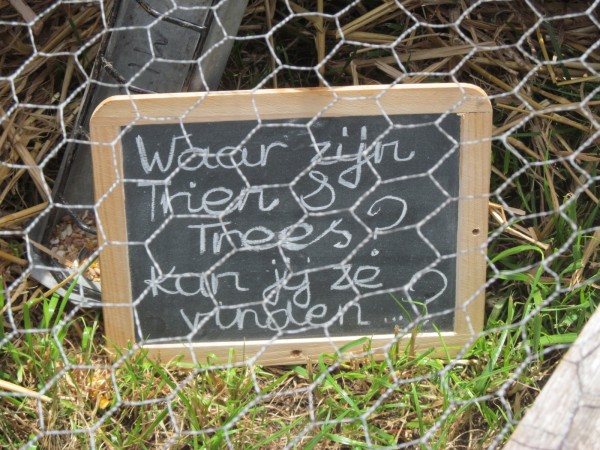 Waar zijn
Trien &
Trees?
kan jij ze
vinden..?